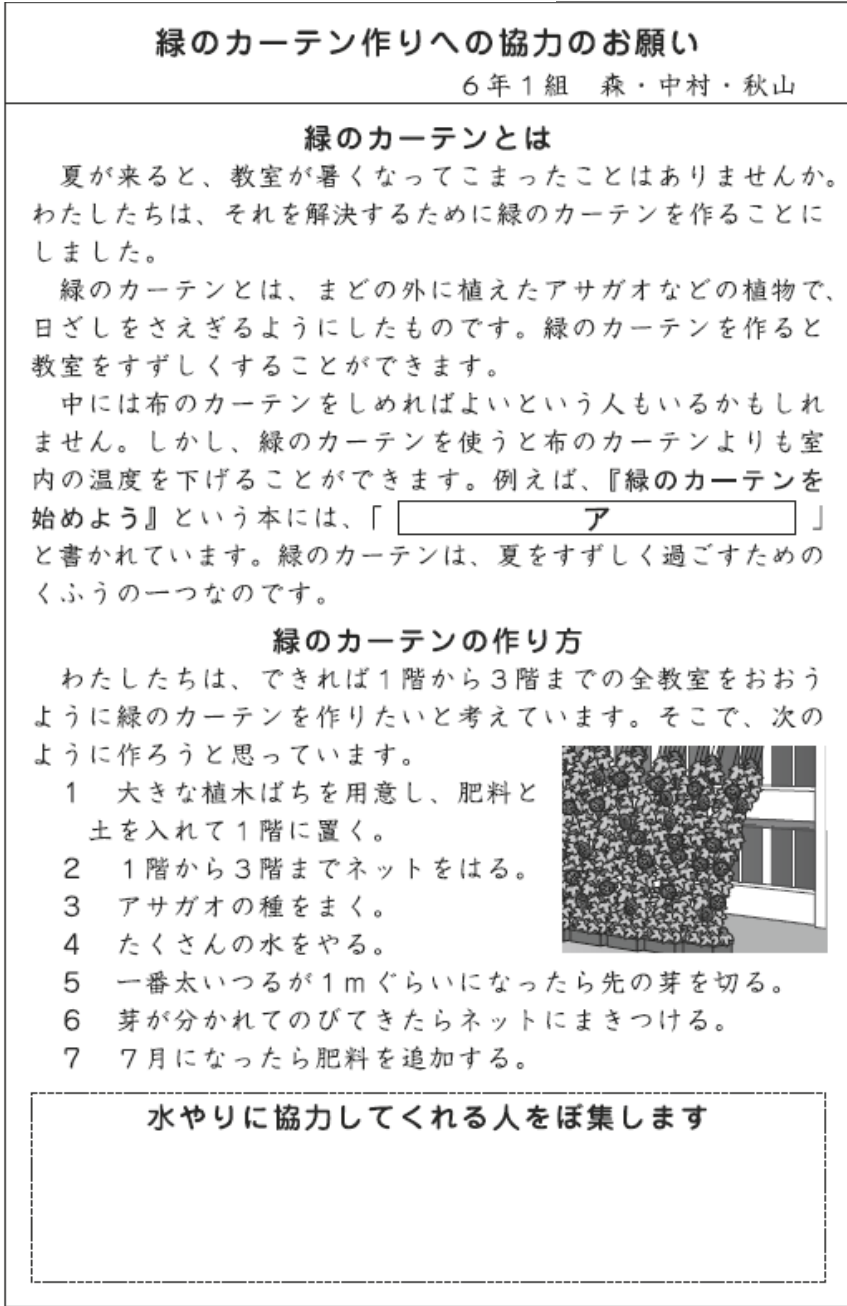 緑のカーテン作りへの協力のお願い
6年1組 森・中村・秋山
緑のカーテンとは
夏が来ると、教室が暑くなってこまったことはありませんか。
わたしたちは、それを解決するために緑のカーテンを作ることに
しました。
緑のカーテンとは、まどの外に植えたアサガオなどの植物で、
日ざしをさえぎるようにしたものです。緑のカーテンを作ると
教室をすずしくすることができます。
中には布のカーテンをしめればよいという人もいるかもしれ
ません。しかし、緑のカーテンを使うと布のカーテンよりも室
内の温度を下げることができます。例えば、『緑のカーテンを
始めよう』という本には、「 ア 」
と書かれています。緑のカーテンは、夏をすずしく過ごすための
くふうの一つなのです。
緑のカーテンの作り方
わたしたちは、できれば1階から3階までの全教室をおおう
ように緑のカーテンを作りたいと考えています。そこで、次の
ように作ろうと思っています。
1 大きな植木ばちを用意し、肥料と
土を入れて1階に置く。
2 1階から3階までネットをはる。
3 アサガオの種をまく。
4 たくさんの水をやる。
5 一番太いつるが1mぐらいになったら先の芽を切る。
6 芽が分かれてのびてきたらネットにまきつける。
7 7月になったら肥料を追加する。
水やりに協力してくれる人をぼ集します